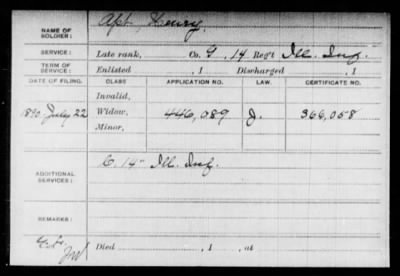 NAME OF SOLDIER: Apt, Henry.
SERVICE: Late rank, Co. G, 14 Reg't Ill. Inf.
TERM OF SERVICE: Enlisted , 1 Discharged , 1
DATE OF FILING. CLASS. APPLICATION NO. LAW. CERTIFICATE NO.
Invalid,
1890 July 22 Widow, 446,089 J. 366,058
Minor,
ADDITIONAL SERVICES: C. 14" Ill. Inf.
REMARKS:
Died , 1 , at